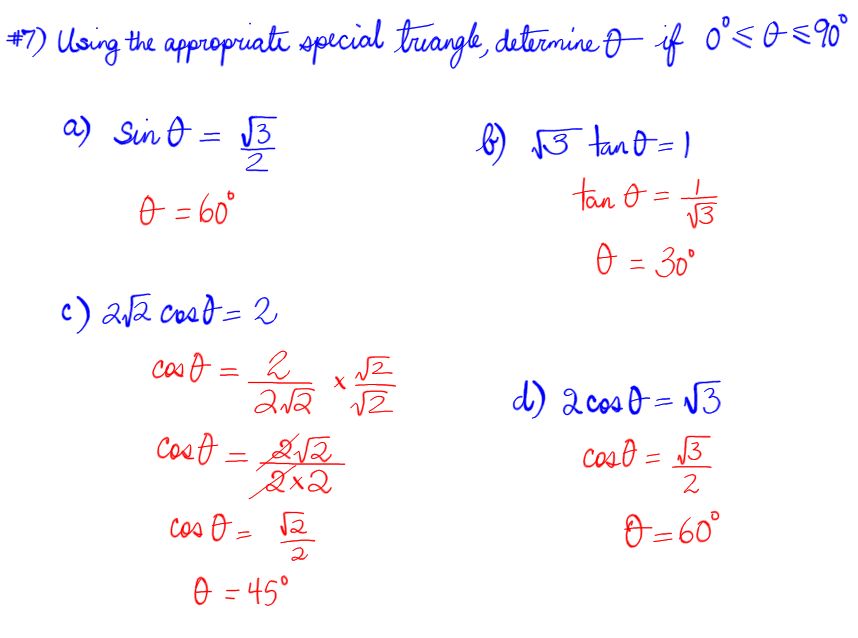 #7) Using the appropriate special triangle, determine θ if 0° ≤ θ ≤ 90°
a) sin θ = √3/2
θ = 60°
b) √3 tan θ = 1
tan θ = 1/√3
θ = 30°
c) 2√2 cos θ = 2
cos θ = 2/2√2 × √2/√2
cos θ = 2√2/2×2
cos θ = √2/2
θ = 45°
d) 2 cos θ = √3
cos θ = √3/2
θ = 60°